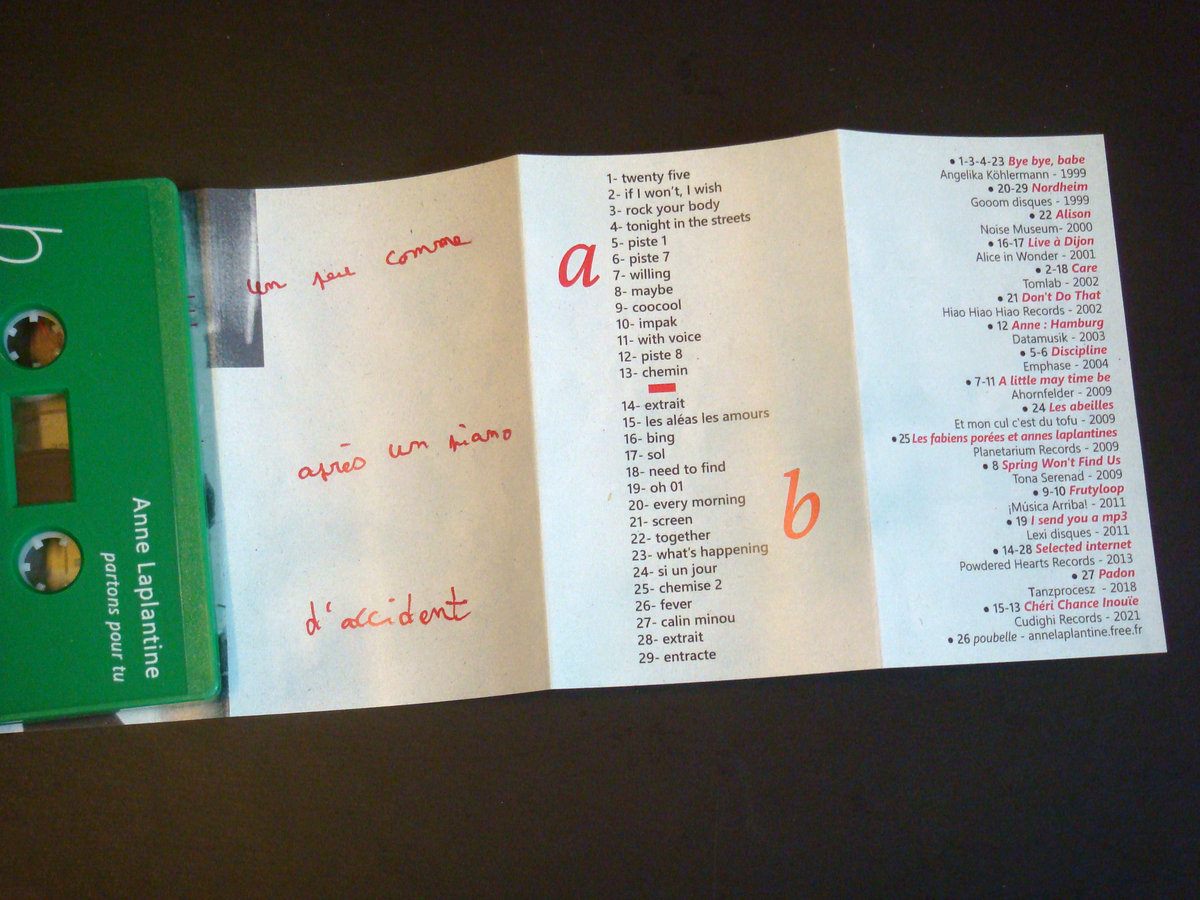 b
Anne Laplantine
partons pour tu
un peu comme
après un piano
d'accident
a
1- twenty five
2- if I won't, I wish
3- rock your body
4- tonight in the streets
5- piste 1
6- piste 7
7- willing
8- maybe
9- coocool
10- impak
11- with voice
12- piste 8
13- chemin
b
14- extrait
15- les aléas les amours
16- bing
17- sol
18- need to find
19- oh 01
20- every morning
21- screen
22- together
23- what's happening
24- si un jour
25- chemise 2
26- fever
27- calin minou
28- extrait
29- entracte
• 1-3-4-23 Bye bye, babe
Angelika Köhlermann - 1999
• 20-29 Nordheim
Gooom disques - 1999
• 22 Alison
Noise Museum- 2000
• 16-17 Live à Dijon
Alice in Wonder - 2001
• 2-18 Care
Tomlab - 2002
• 21 Don't Do That
Hiao Hiao Hiao Records - 2002
• 12 Anne : Hamburg
Datamusik - 2003
• 5-6 Discipline
Emphase - 2004
• 7-11 A little may time be
Ahornfelder - 2009
• 24 Les abeilles
Et mon cul c'est du tofu - 2009
• 25 Les fabiens porées et annes laplantines
Planetarium Records - 2009
• 8 Spring Won't Find Us
Tona Serenad - 2009
• 9-10 Frutyloop
¡Música Arriba! - 2011
• 19 I send you a mp3
Lexi disques - 2011
• 14-28 Selected internet
Powdered Hearts Records - 2013
• 27 Padon
Tanzprocesz - 2018
• 15-13 Chéri Chance Inouïe
Cudighi Records - 2021
• 26 poubelle - annelaplantine.free.fr